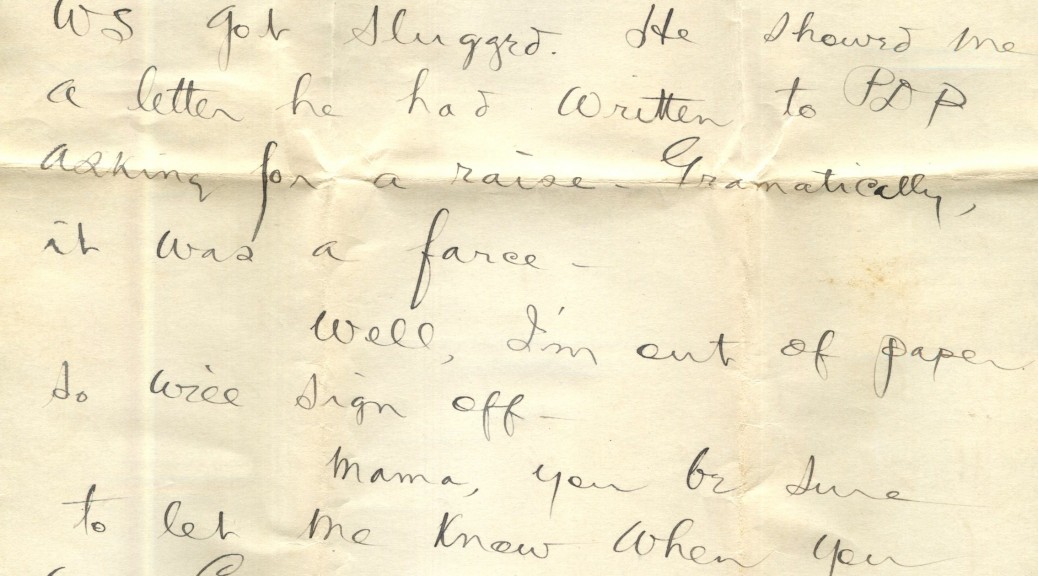 WS got slugged. He showed me
a letter he had written to PDP
asking for a raise - Gramatically,
it was a farce -
Well, I'm out of paper
so will sign off -
Mama, you be sure
to let me know when you